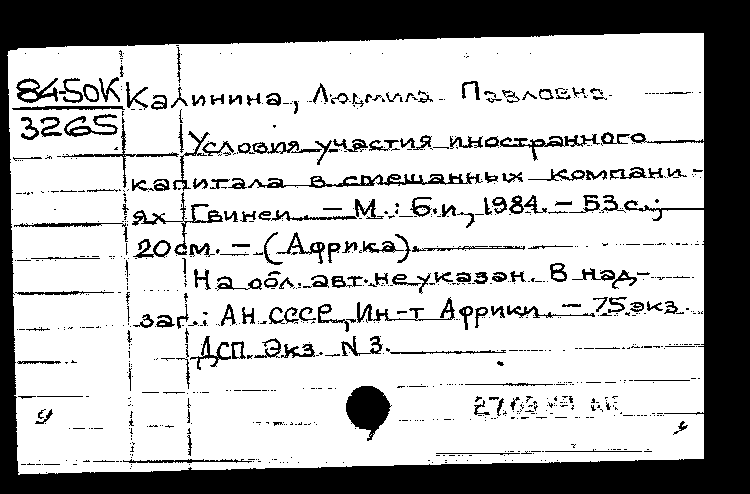 84-50К Калинина, Людмила Павловна
3265
Условия участия иностранного
капитала в смешанных компани-
ях Гвинеи. — М.: Б.и., 1984. — 53 с.;
20 см. — (Африка).
На обл. авт. не указан. В над-
заг.: АН СССР, Ин-т Африки. — 75 экз.
ДСП. Экз. N 3.